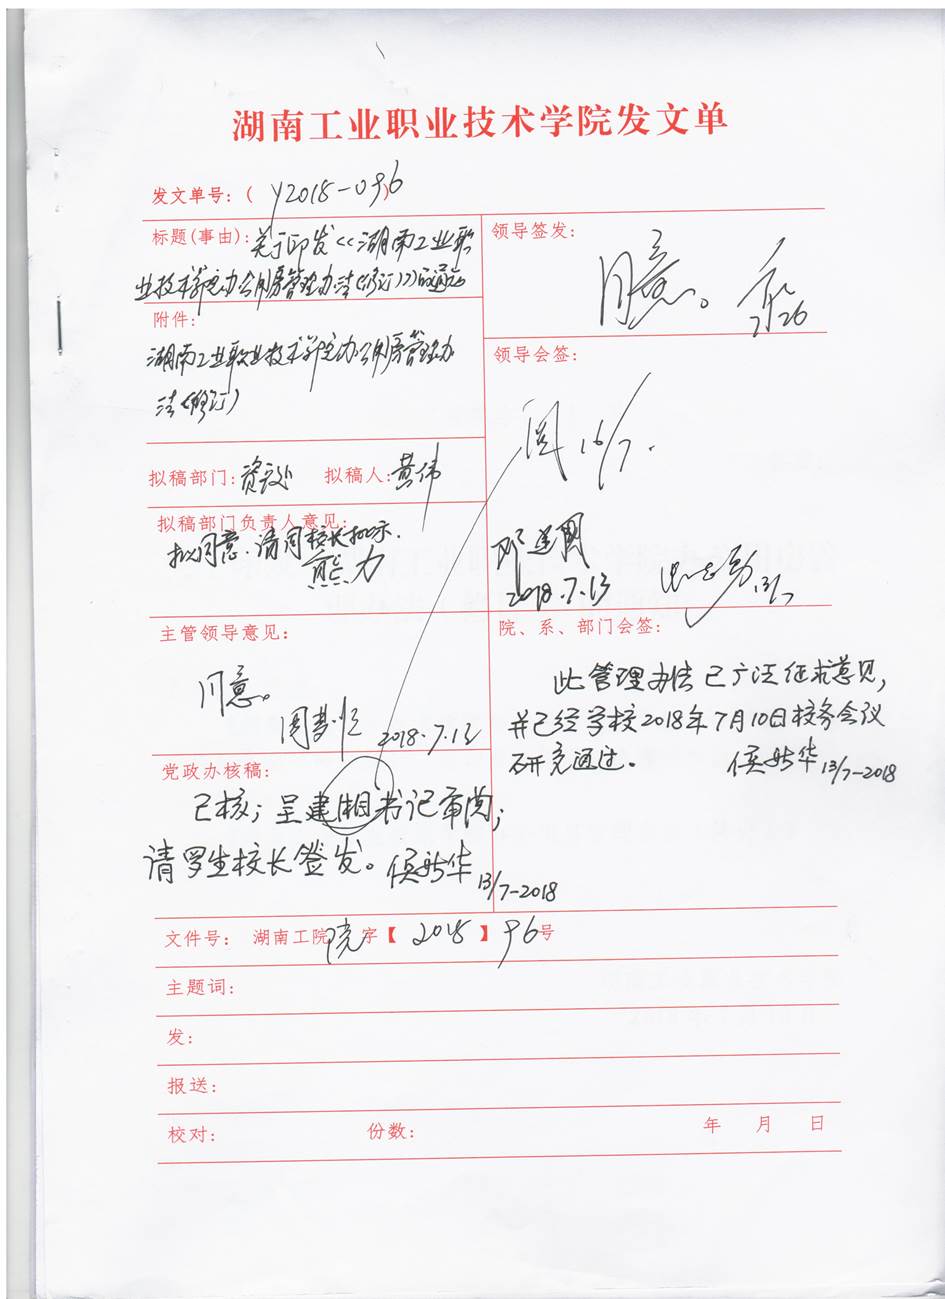 湖南工业职业技术学院发文单
发文单号：( Y2018-096
标题(事由)：关于印发<<湖南工业职
业技术学院办公用房管理办法(修订)>>的通知
附件：
湖南工业职业技术学院办公用房管理办
法(修订)
拟稿部门：资设处 拟稿人：黄伟
拟稿部门负责人意见：
拟同意.请周校长批示.
熊力
主管领导意见：
同意。
2018.7.13
党政办核稿：
已核；呈建湘书记审阅；
请罗生校长签发。侯新华 13/7-2018
领导签发：
同意。
7.26
领导会签：
阅 16/7.
邓建国
2018.7.13
13/7
院、系、部门会签：
此管理办法已广泛征求意见，
并已经学校2018年7月10日校务会议
研究通过。
侯新华 13/7-2018
文件号：湖南工院院字【2018】96号
主题词：
发：
报送：
校对： 份数： 年 月 日